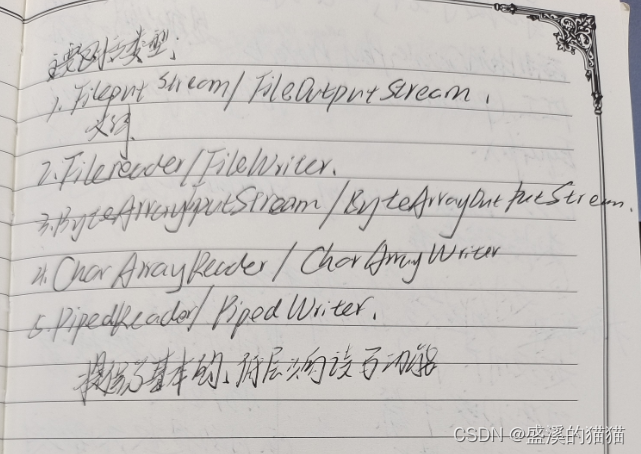 主要的类型:
1. Fileput Stream/FileOutputStream.
2. Filereader/FileWriter.
3. ByteArrayputStream/ByteArrayOutputStream.
4. CharArrayReader/CharArrayWriter
5. PipedReader/PipedWriter.
提供了基本的、底层次的读写功能
CSDN @盛溪的猫猫